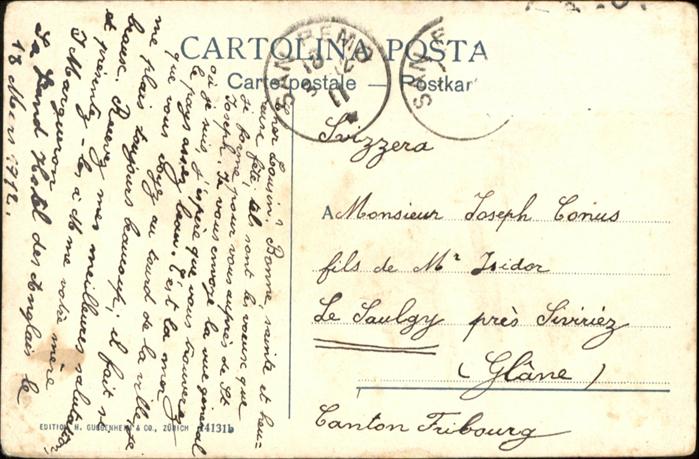 CARTOLINA POSTA
Carte postale — Postkar
SAN REMO
SAN
Svizzera
A Monsieur Joseph Conus
fils de Mr Isidor
Le Saulgy près Siviriez
(Glâne)
Canton Fribourg
Cher Cousin, Bonne, sainte et heu-
reuse fête, tels sont les voeux que
je forme pour vous auprès de St
Joseph. Je vous envoye la vue général
où je suis, j'espère que vous trouverez
le pays assez beau. c'est la mer
que vous voyez au tour de la ville,
me plais toujours beaucoup, il fait
chause. Recevez mes meilleures salutations,
et présentez-les à Me votre mère
J. Margueron
Grand Hotel des Anglais le
18 Mars 1912.
EDITION H. GUGGENHEIM & CO., ZÜRICH 14131b